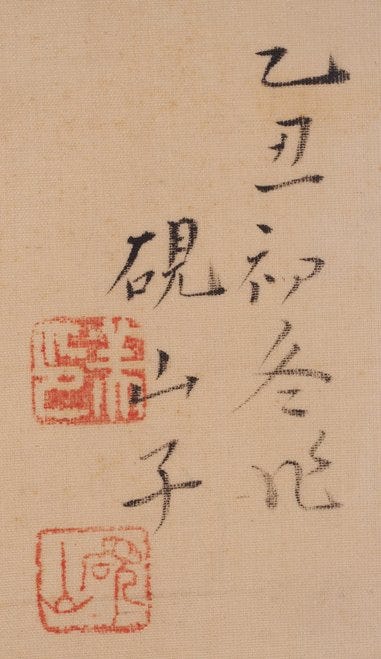 乙丑初冬作
硯山子